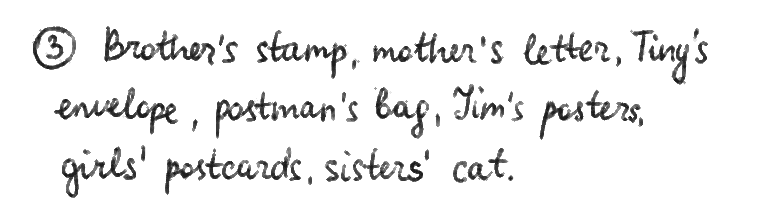 ③ Brother's stamp, mother's letter, Tiny's
envelope, postman's bag, Jim's posters,
girls' postcards, sisters' cat.